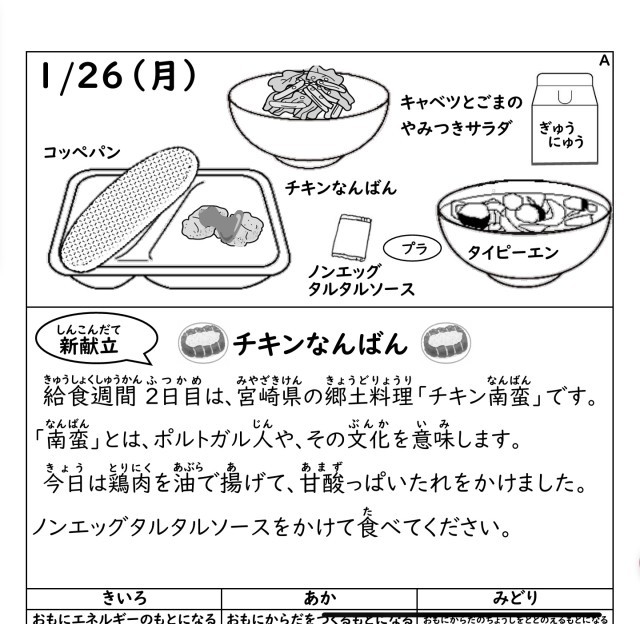 A
1/26(月)
キャベツとごまの
やみつきサラダ
ぎゅう
にゅう
コッペパン
チキンなんばん
プラ
タイピーエン
ノンエッグ
タルタルソース
しんこんだて
新献立
チキンなんばん
きゅうしょくしゅうかん ふつかめ みやざきけん きょうどりょうり なんばん
給食週間 2日目は、宮崎県の郷土料理「チキン南蛮」です。
なんばん じん ぶんか いみ
「南蛮」とは、ポルトガル人や、その文化を意味します。
きょう とりにく あぶら あ あまず
今日は鶏肉を油で揚げて、甘酸っぱいたれをかけました。
た
ノンエッグタルタルソースをかけて食べてください。
きいろ あか みどり
おもにエネルギーのもとになる おもにからだをつくるもとになる おもにからだのちょうしをととのえるもとになる